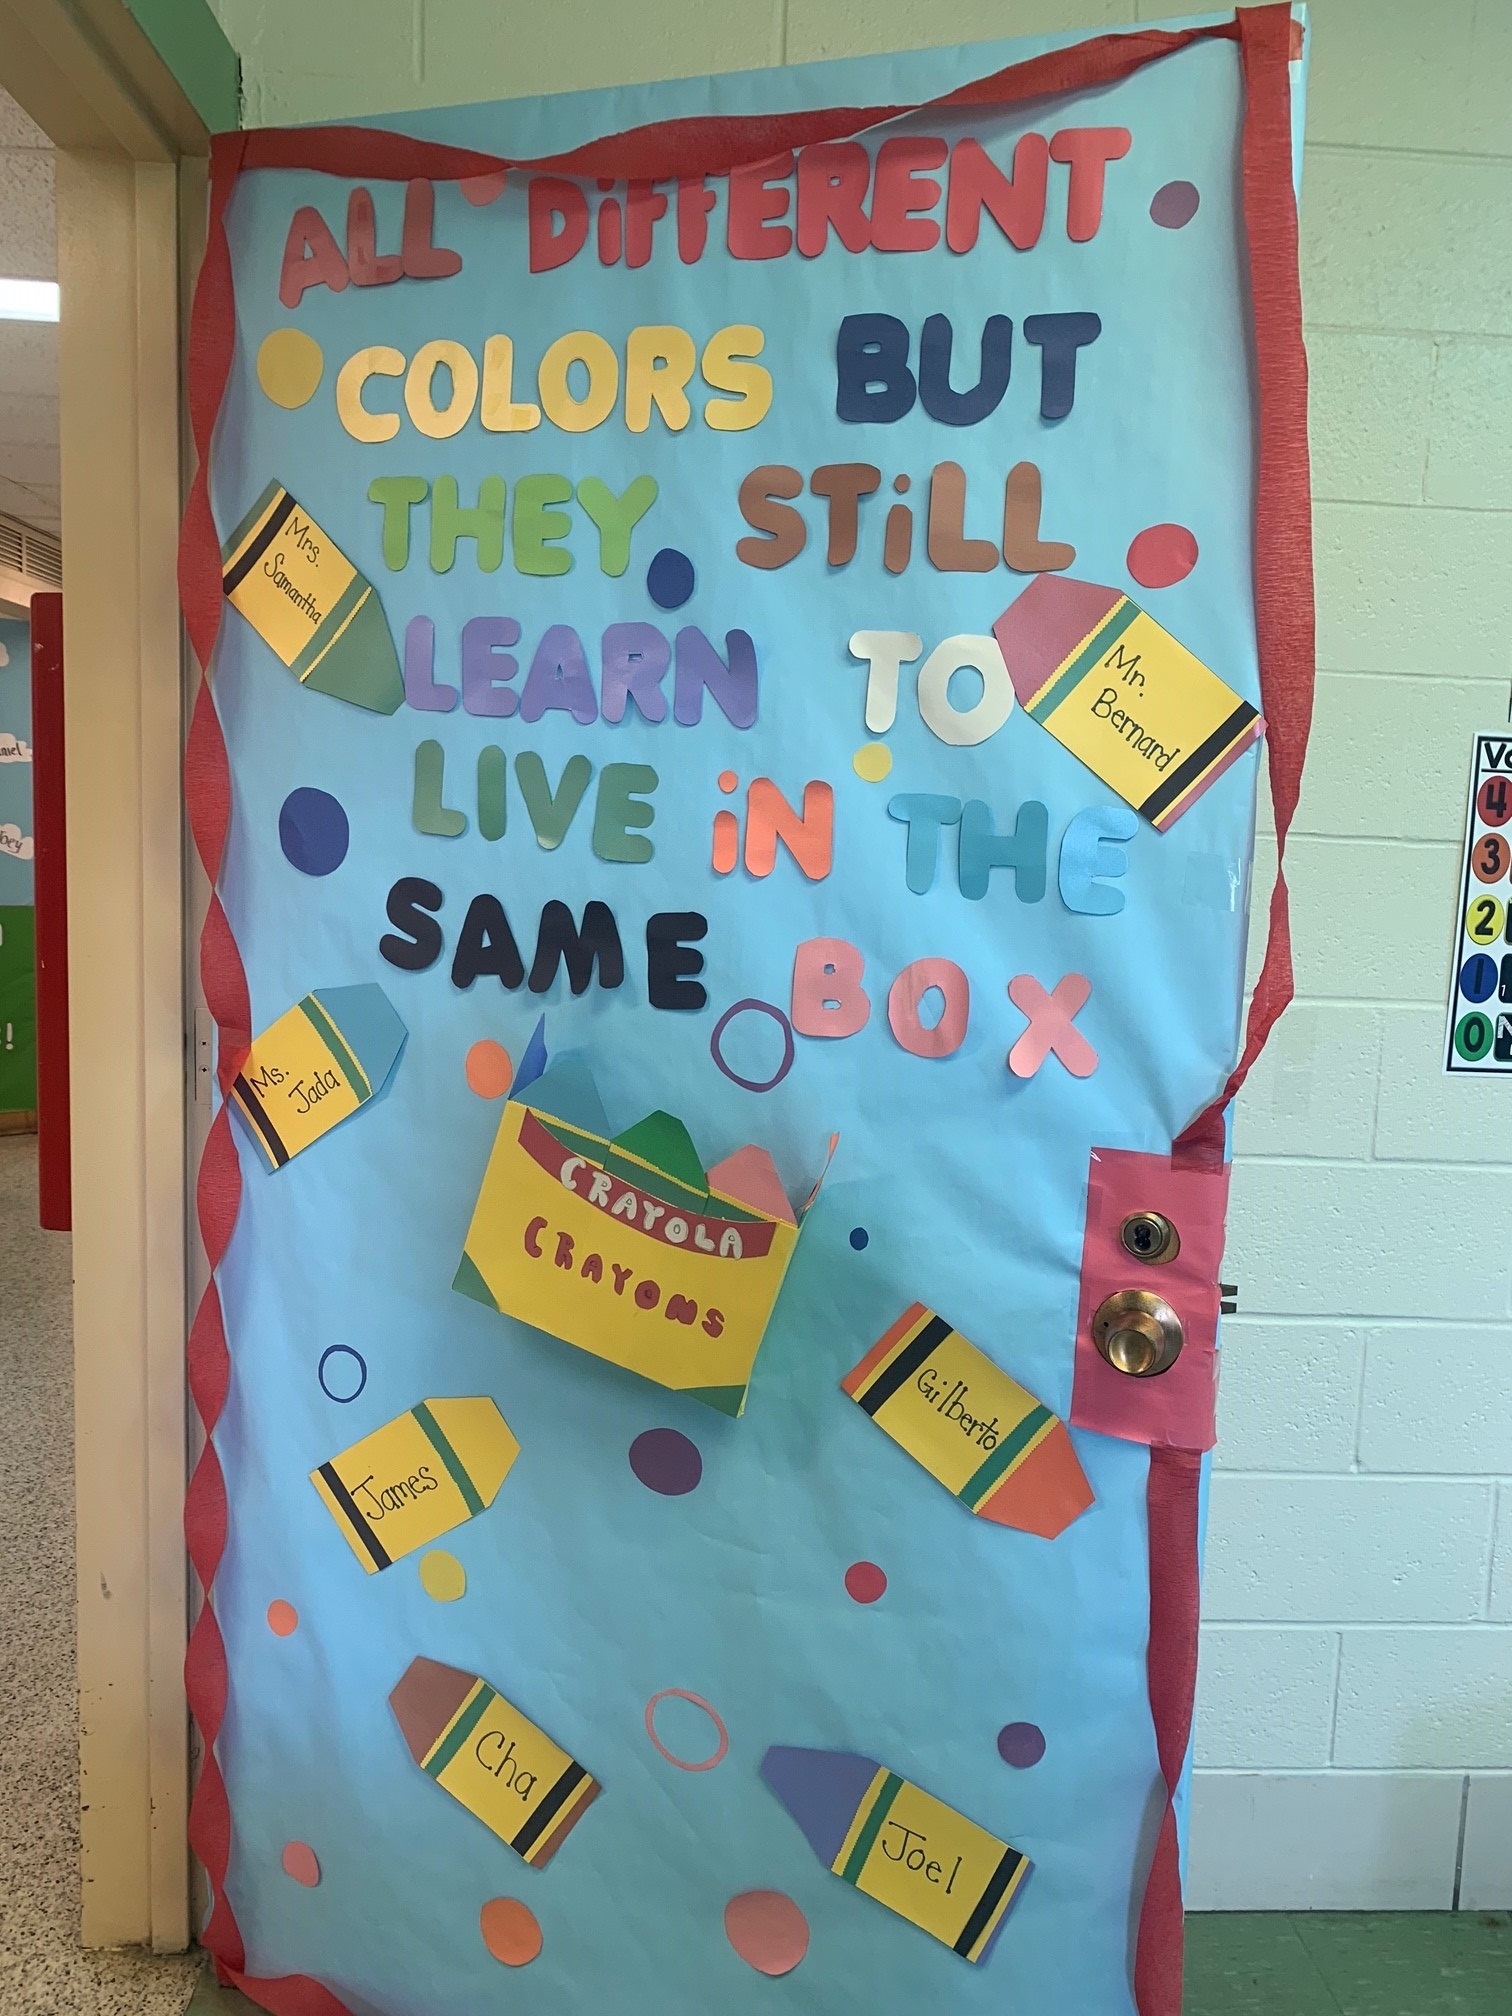 ALL DiFFERENT
COLORS BUT
THEY STiLL
LEARN TO
LIVE iN THE
SAME BOX
Mrs.
Samantha
Mr.
Bernard
Ms.
Jada
CRAYOLA
CRAYONS
Gilberto
James
Cha
Joel
4
3
2
1
0